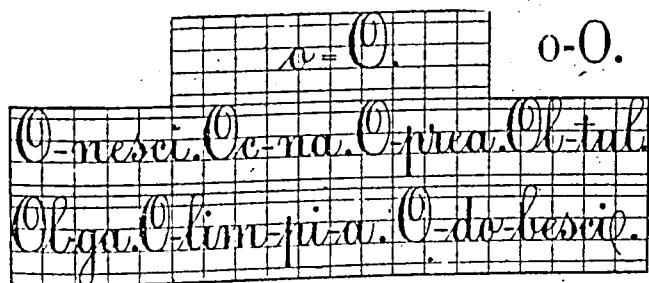 o = O. o-O.
O-nesci. Oc-na. O-prea. Ol-tul.
Ol-ga. O-lim-pi-a. O-do-besci.